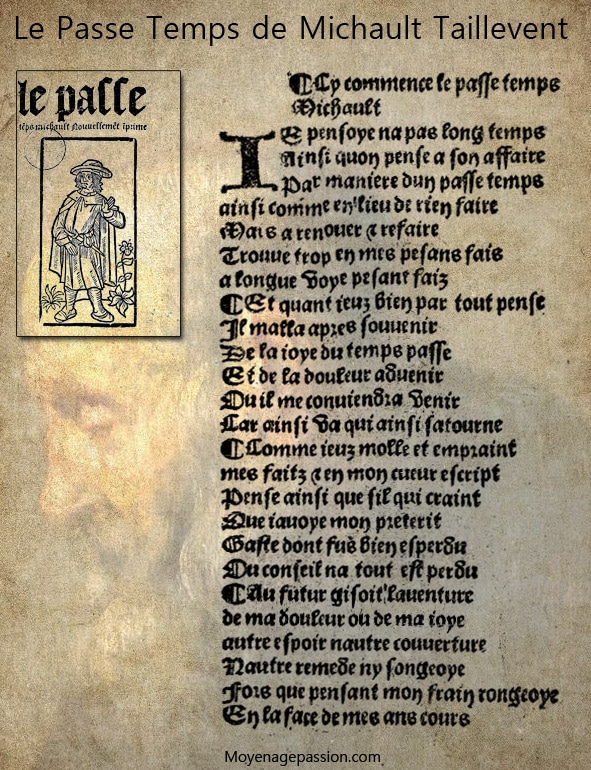 Le Passe Temps de Michault Taillevent
le passe
tẽps michault Nouuellemẽt ĩprime
¶Cy commence le passe temps
Michault
IE pensoye na pas long temps
Ainsi quon pense a son affaire
Par maniere dun passe temps
ainsi comme en lieu de rien faire
Mais a renouer ⁊ refaire
Trouue trop en mes pesans fais
a longue voye pesant faiz
¶Et quant ieuz bien par tout pense
Il malla apres souuenir
De la ioye du temps passe
Et de la douleur aduenir
Ou il me conuiendra venir
Car ainsi va qui ainsi satourne
¶Comme ieuz molle et empraint
mes faitz ⁊ en mon cueur escript
Pense ainsi que sil qui craint
Que iauoye mon preterit
Gaste dont fuz bien esperdu
Ou conseil na tout est perdu
¶Au futur gisoit lauenture
de ma douleur ou de ma ioye
autre espoir nautre couuerture
Nautre remede ny songeoye
Fors que pensant mon frain rongeoye
En la face de mes ans cours
Moyenagepassion.com